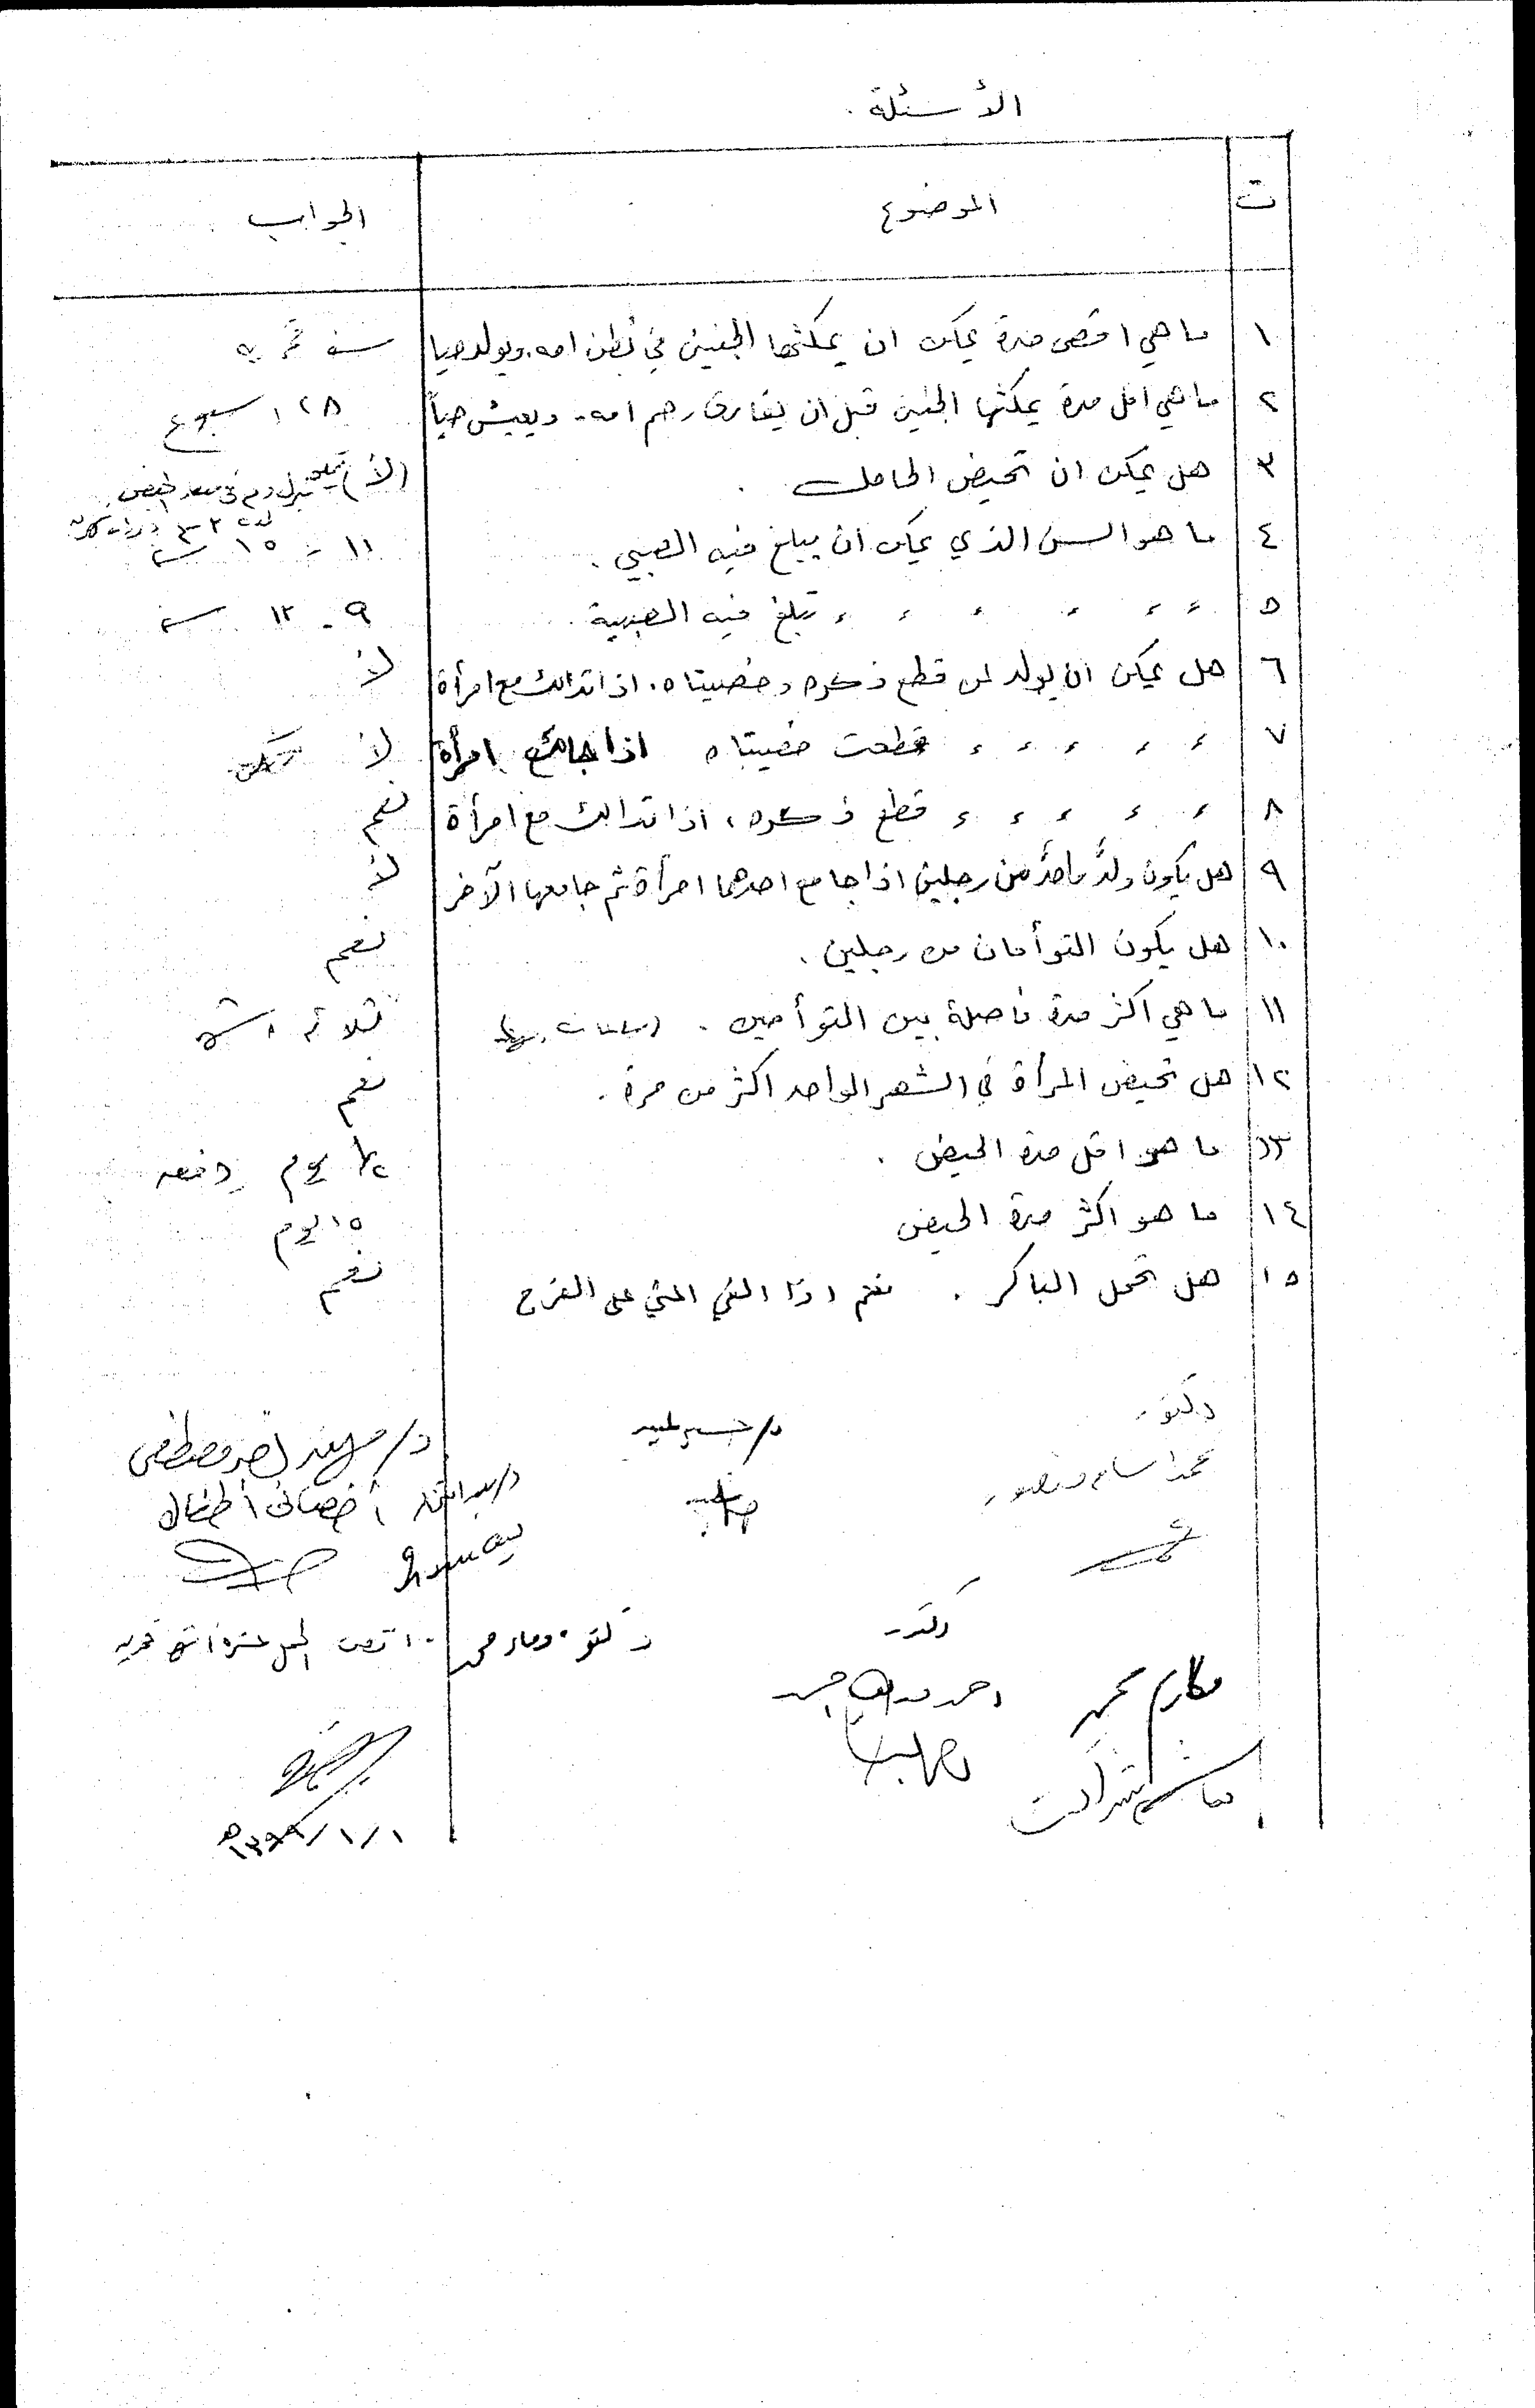 الأسئلة .
ت الموضوع الجواب
١ ما هي اقصى مدة يمكن ان يمكثها الجنين في بطن امه ويولد حيا سنة قمرية
٢ ما هي اقل مدة يمكثها الجنين قبل ان يفارق رحم امه ويعيش حياً ٢٨ اسبوع
٣ هل يمكن ان تحيض الحامل . (لا) ينزل دم في الحيض
٤ ما هو السن الذي يمكن ان يبلغ فيه الصبي . ١١ - ١٥ سنة
٥ ٬ ٬ ٬ ٬ ٬ ٬ تبلغ فيه الصبية ٩ - ١٢ سنة
٦ هل يمكن ان يولد لمن قطع ذكره وخصيتاه . اذا تدالك مع امرأة لا
٧ ٬ ٬ ٬ ٬ ٬ قطعت خصيتاه اذا جامع امرأة لا
٨ ٬ ٬ ٬ ٬ ٬ قطع ذكره ، اذا تدالك مع امرأة نعم
٩ هل يكون ولدٌ واحدٌ من رجلين اذا جامع احدهما امرأة ثم جامعها الآخر لا
١٠ هل يكون التوأمان من رجلين . نعم
١١ ما هي اكثر مدة فاصلة بين التوأمين . ثلاثة اشهر
١٢ هل تحيض المرأة في الشهر الواحد اكثر من مرة . نعم
١٣ ما هو اقل مدة الحيض . ١/٢ يوم دفعه
١٤ ما هو اكثر مدة الحيض ١٥ يوم
١٥ هل تحمل الباكر . نعم اذا القي المني على الفرج نعم
دكتور
محمد سالم منصور
د/ مصطفى
أخصائى أطفال
دكتور
احمد
مكارم محمد
دكتور
الحمل عشرة اشهر قمريه
١/١/١٣٩٩هـ